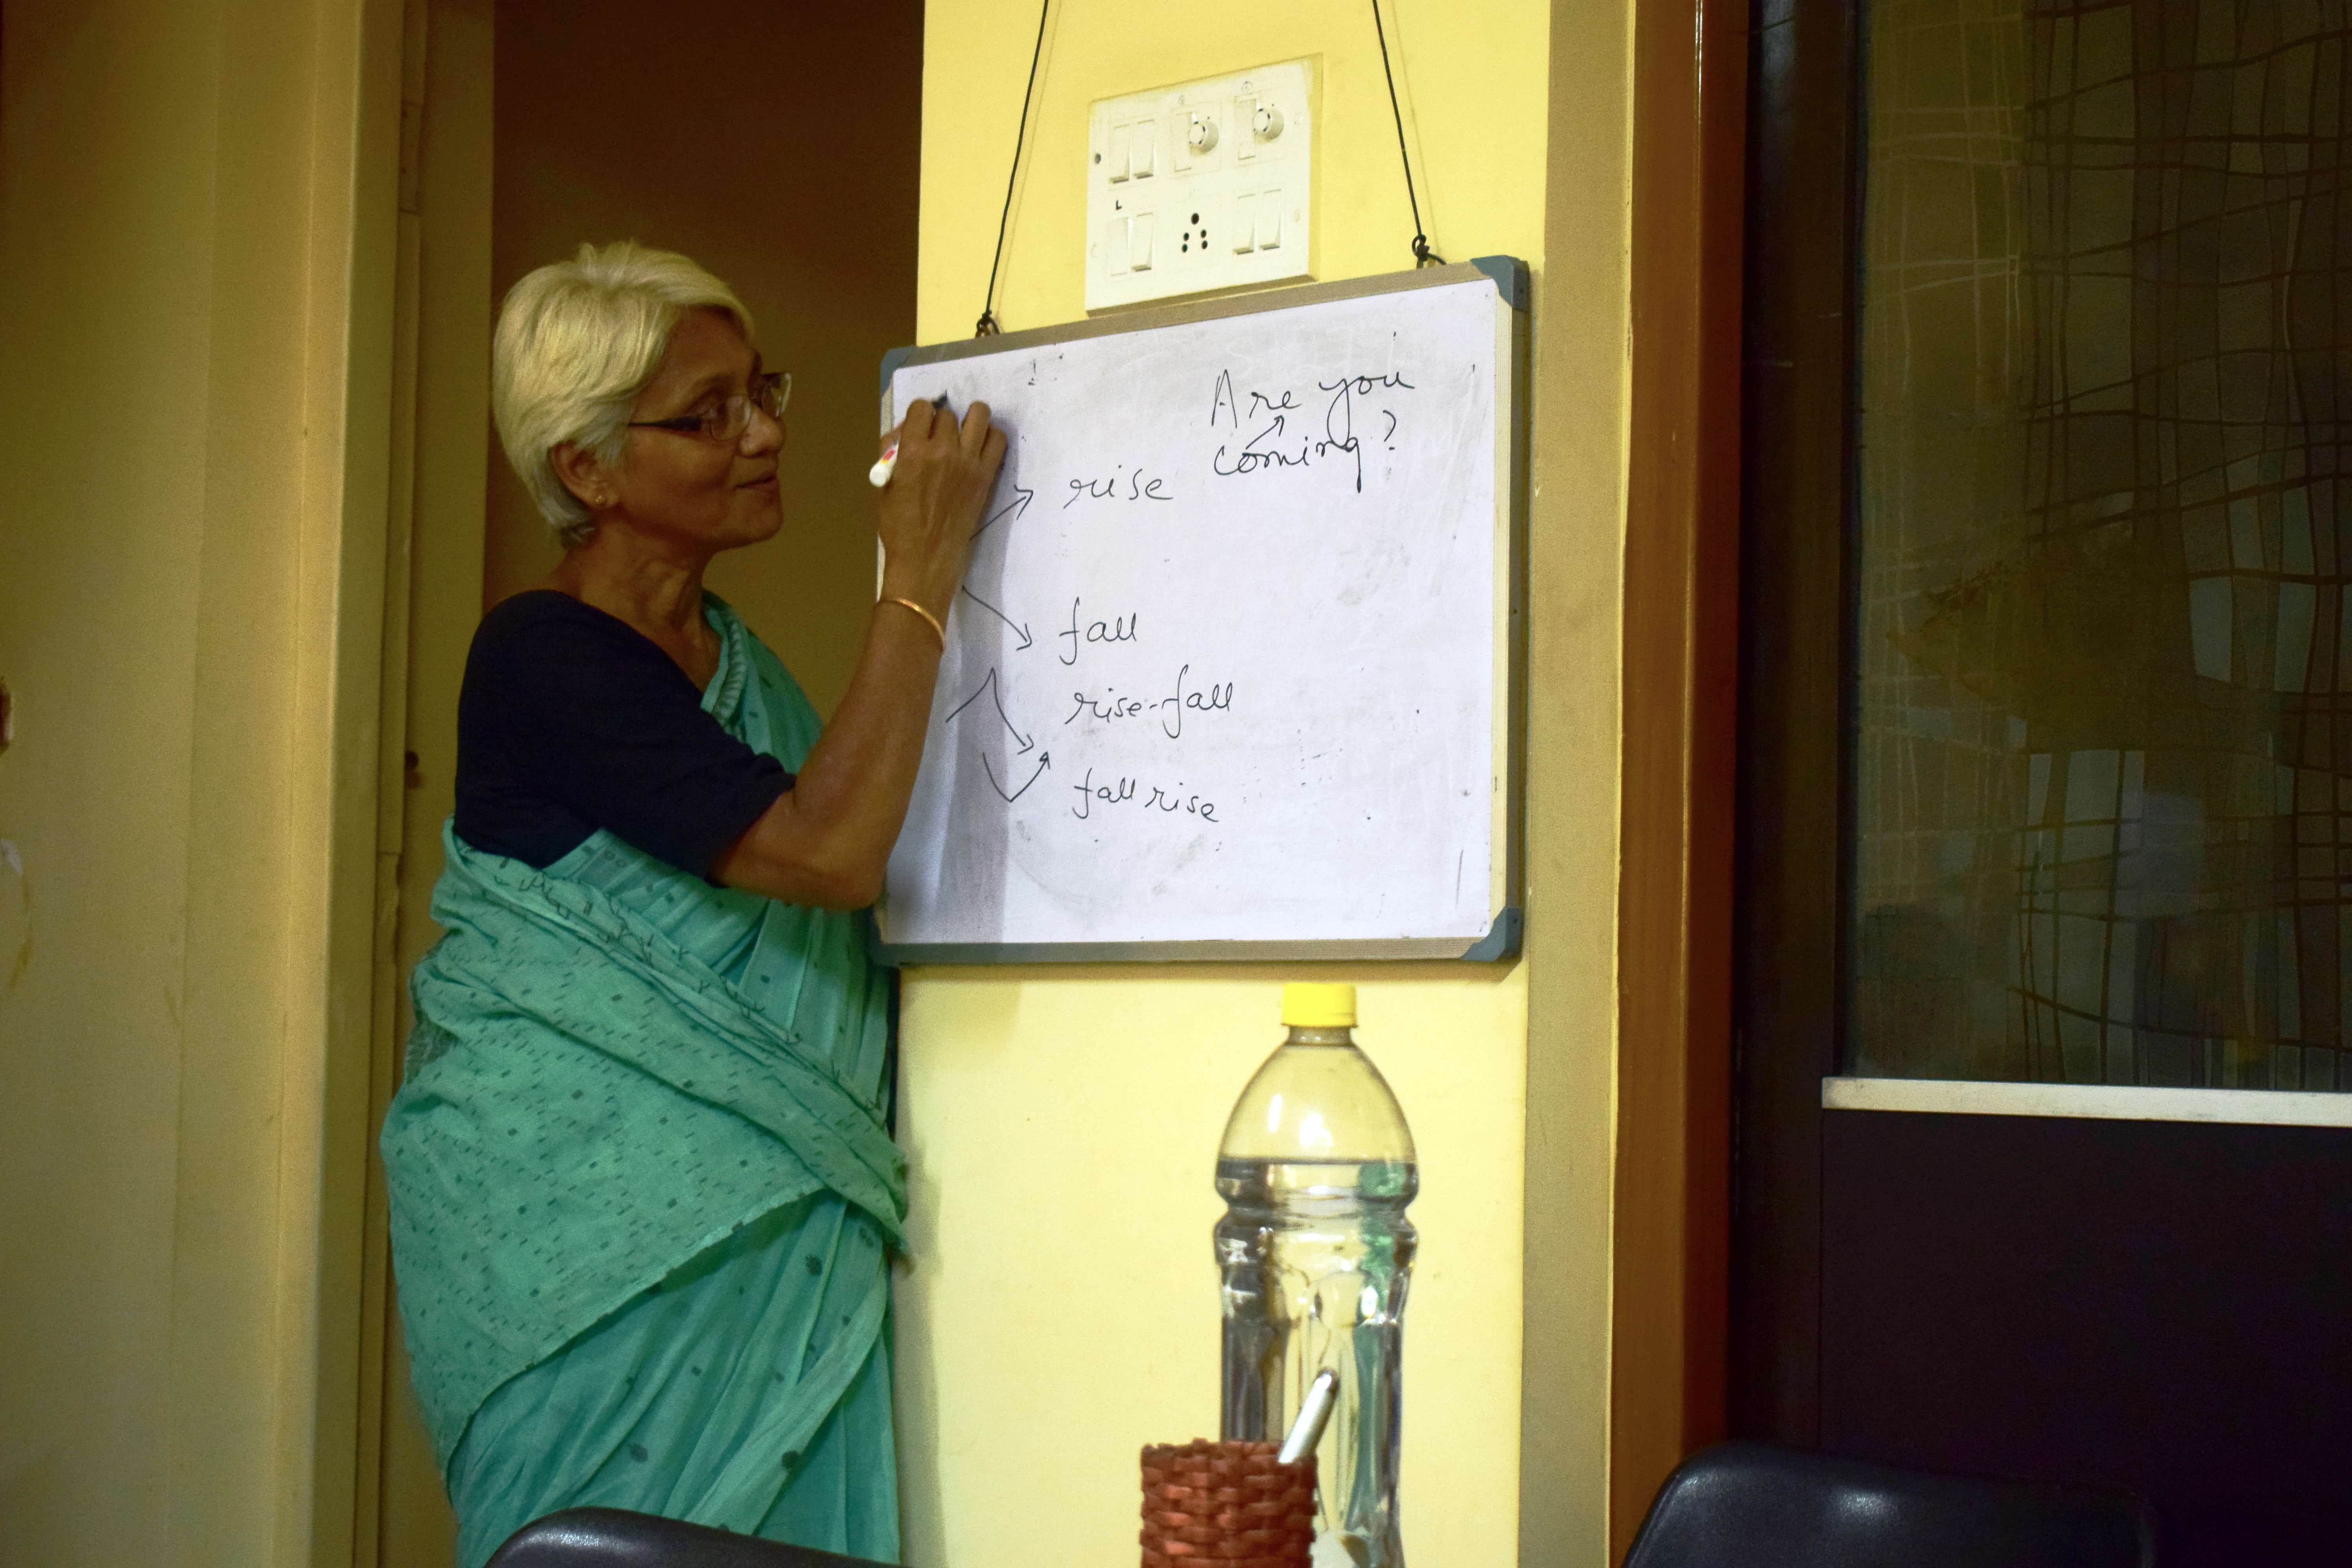 Are you
coming?
rise
fall
rise-fall
fall rise